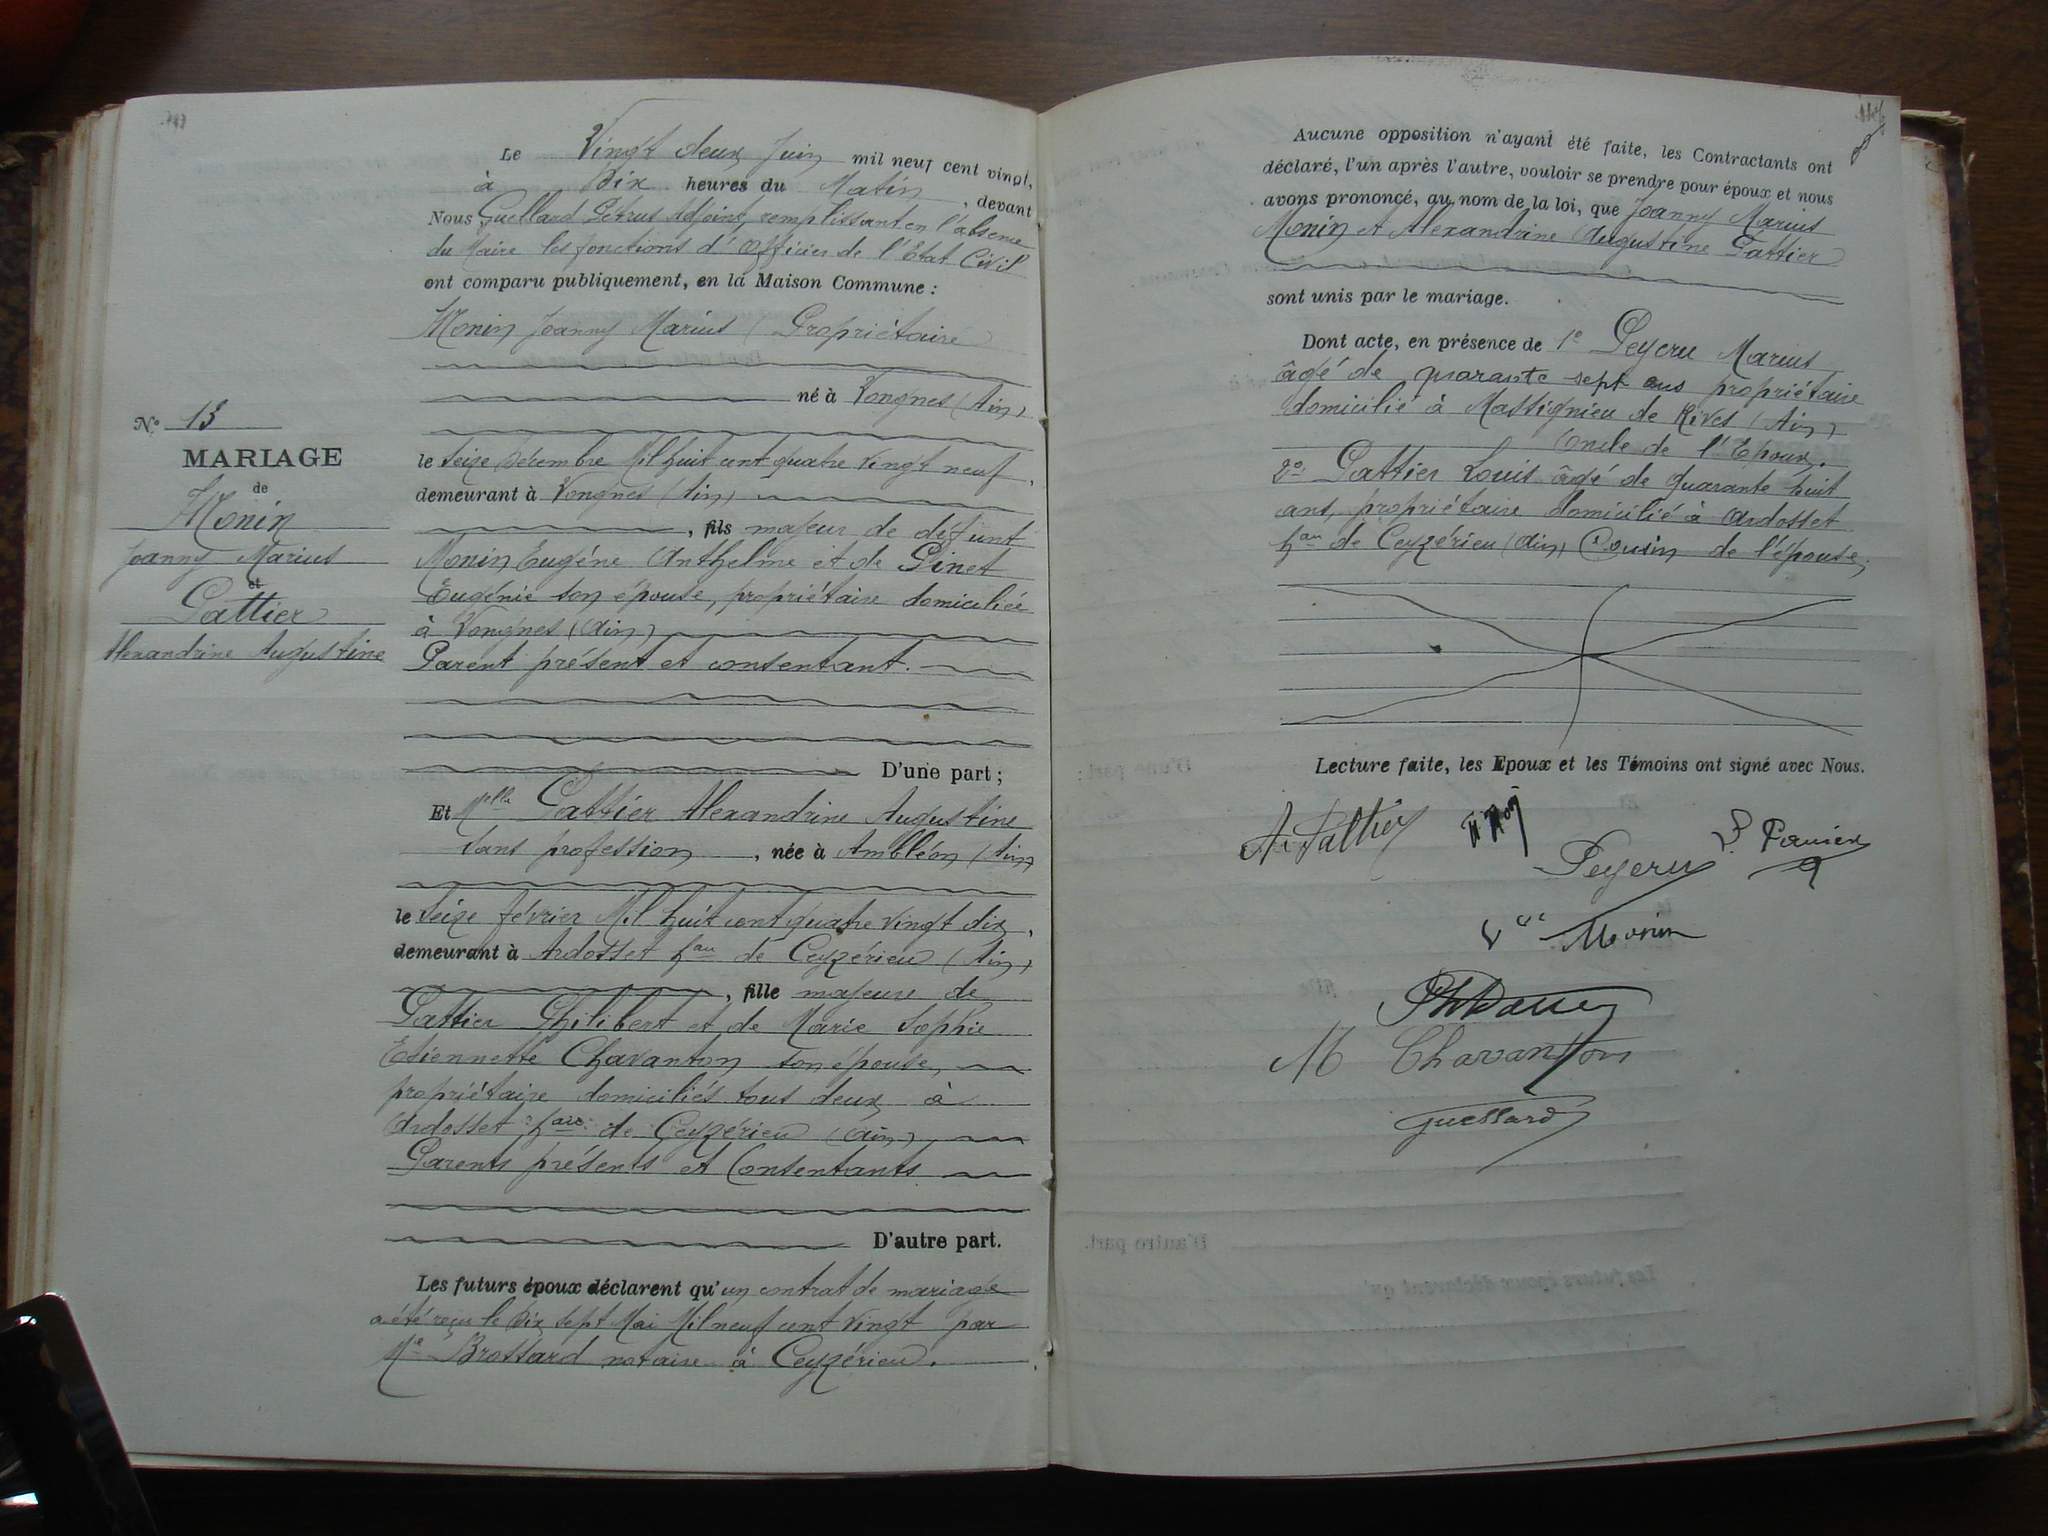 Le Vingt deux Juin mil neuf cent vingt,
à Dix heures du Matin, devant
Nous Guellard Pétrus Adjoint, remplissant en l'absence
du Maire les fonctions d'Officier de l'Etat Civil
ont comparu publiquement, en la Maison Commune :
Monin Joanny Marius (Propriétaire)
né à Vongnes (Ain)
No 13
MARIAGE
de
Monin
Joanny Marius
et
Pattier
Alexandrine Augustine
le Seize Décembre Mil huit cent quatre vingt neuf,
demeurant à Vongnes (Ain)
, fils majeur de défunt
Monin Eugéne Anthelme et de Pinet
Eugénie son épouse, propriétaire domiciliée
à Vongnes (Ain)
Parent présent et consentant.
D'une part ;
Et Melle Pattier Alexandrine Augustine
sans profession, née à Ambléon (Ain)
le Seize février Mil huit cent quatre vingt dix,
demeurant à Ardosset hau de Ceyzérieu (Ain)
, fille majeure de
Pattier Philibert et de Marie Sophie
Etiennette Chavanton son épouse,
propriétaire domiciliés tous deux à
Ardosset hau de Ceyzérieu (Ain),
Parents présents et Consentants
D'autre part.
Les futurs époux déclarent qu'un contrat de mariage
a été reçu le Dix sept Mai Mil neuf cent vingt par
Me Brossard notaire à Ceyzérieu.
Aucune opposition n'ayant été faite, les Contractants ont
déclaré, l'un après l'autre, vouloir se prendre pour époux et nous
avons prononcé, au nom de la loi, que Joanny Marius
Monin et Alexandrine Augustine Pattier
sont unis par le mariage.
Dont acte, en présence de 1o Peyeru Marius
âgé de quarante sept ans propriétaire
domicilié à Massignieu de Rives (Ain)
Oncle de l'Epoux.
2o Pattier Louis âgé de quarante huit
ans, propriétaire domicilié à Ardosset
hau de Ceyzérieu (Ain) Cousin de l'épouse,
Lecture faite, les Epoux et les Témoins ont signé avec Nous.
A. Pattier
Peyeru
Vve Monin
M Chavanton
Guellard